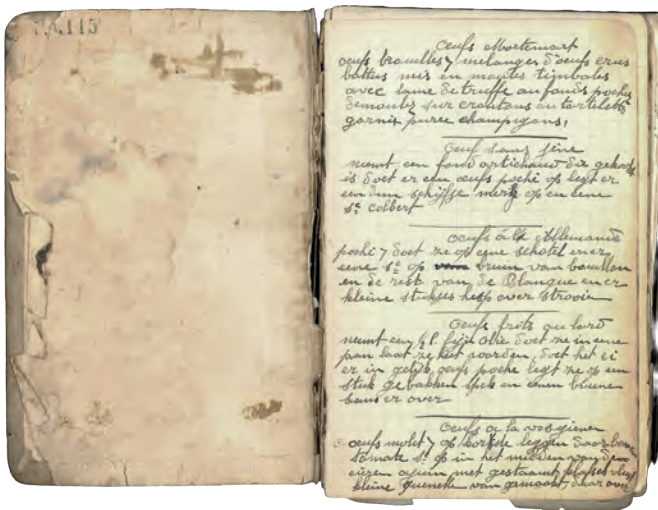 7.A.115
Oeufs Mortemart
oeufs brouilles, melanges d'oeufs crus
battus mis en moules timbales
avec lame de truffe au fonds poches
demoules sur croutons au tartelets
garnis puree champignons,
Oeuf sans
neemt een fond artichaud die gekookt
is doet er een oeufs poché op legt er
een dun schijfje merg op en eene
se colbert
Oeufs á la Allemande
poché, doet ze op eene schotel en er
eene se op bruin van bouillon
en de rest van de en er
kleine stukjes hesp over strooien
Oeufs frits au lard
neemt een ½ l. fijn olie doet ze in eene
pan laat ze heet worden, doet het ei
er in gelijk oeufs poche legt ze op een
stuk gebakken spek en eenen bruine
saus er over
Oeufs a la
oeufs molet, op leggen daar
tomate se op in het midden van den
eieren ajuin met
kleine quenelle van gemaakt daar over